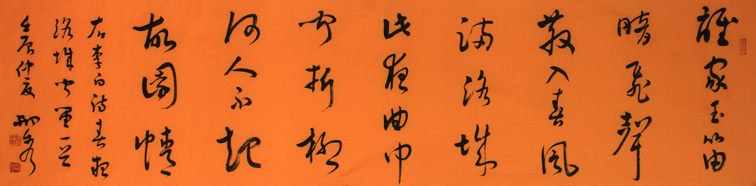 誰家玉笛
暗飛聲
散入春風
滿洛城
此夜曲中
聞折柳
何人不起
故園情
右李白詩春夜
洛城聞笛一首
壬辰仲夏